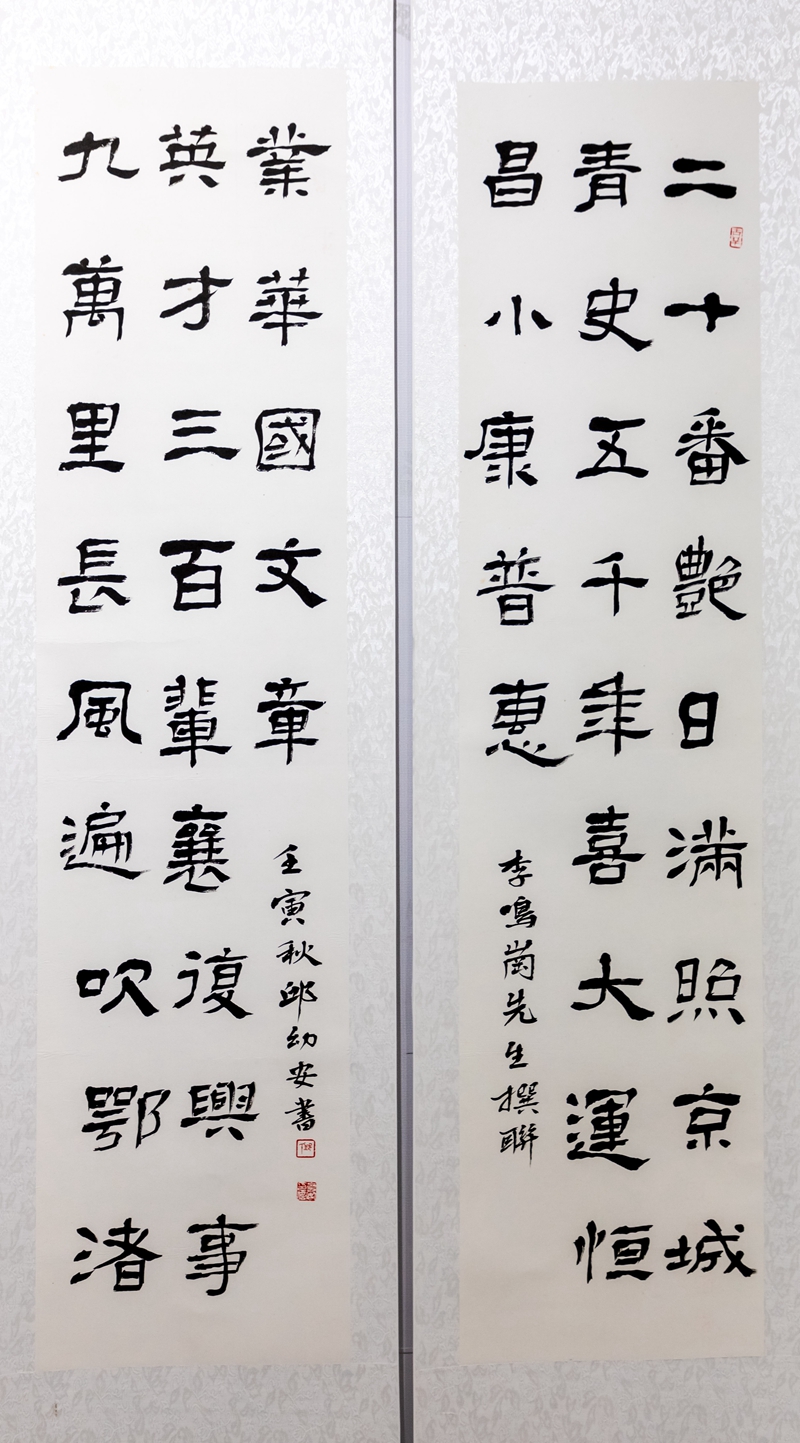 二十番艷日滿照京城
青史五千年喜大運恒
昌小康普惠
李鳴崗先生撰聯
九萬里長風遍吹鄂渚
英才三百輩襄復興事
業華國文章
壬寅秋邱幼安書